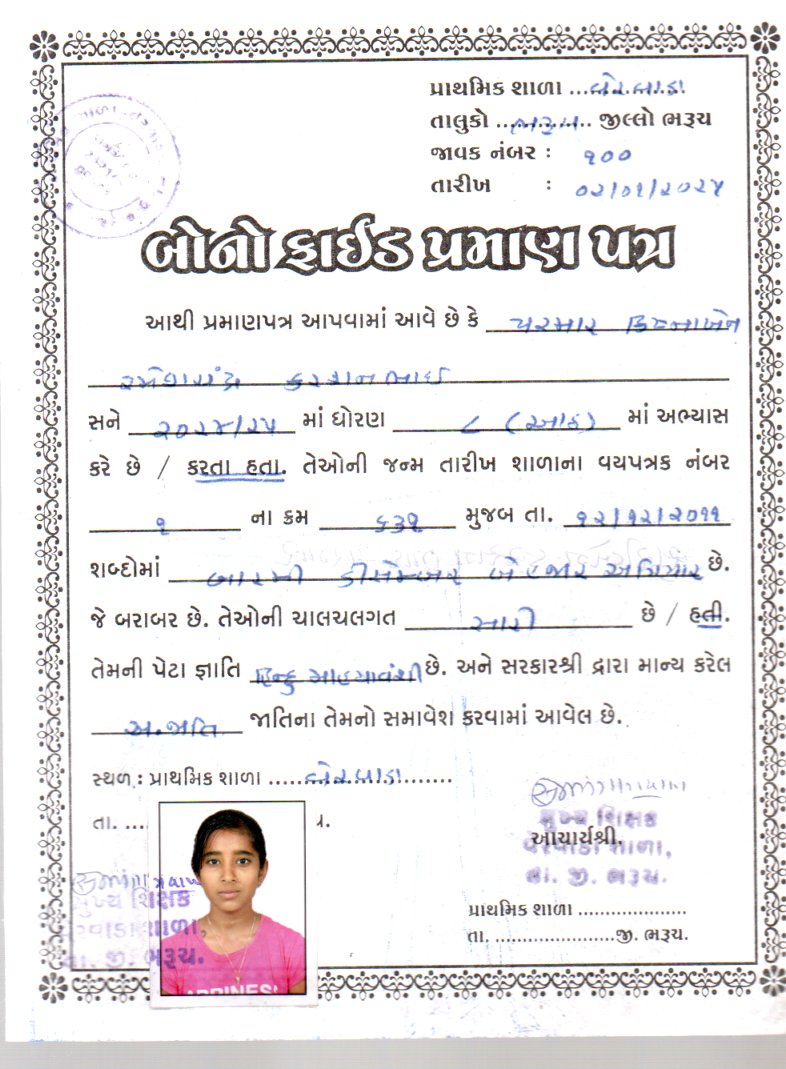 પ્રાથમિક શાળા ...વેરવાડા
તાલુકો ...ભરૂચ... જીલ્લો ભરૂચ
જાવક નંબર : ૧૦૦
તારીખ : ૦૨/૦૧/૨૦૨૫
બોનોફાઈડ પ્રમાણ પત્ર
આથી પ્રમાણપત્ર આપવામાં આવે છે કે પરમાર ક્રિષ્નાબેન
રમેશચંદ્ર કરશનભાઈ
સને ૨૦૨૪/૨૫ માં ધોરણ ૮ (આઠ) માં અભ્યાસ
કરે છે / કરતા હતા. તેઓની જન્મ તારીખ શાળાના વયપત્રક નંબર
૧ ના ક્રમ ૬૩૧ મુજબ તા. ૧૨/૧૨/૨૦૧૧
શબ્દોમાં બારમી ડીસેમ્બર બે હજાર અગિયાર છે.
જે બરાબર છે. તેઓની ચાલચલગત સારી છે / હતી.
તેમની પેટા જ્ઞાતિ હિન્દુ માહ્યાવંશી છે. અને સરકારશ્રી દ્વારા માન્ય કરેલ
અ.જાતિ જાતિના તેમનો સમાવેશ કરવામાં આવેલ છે.
સ્થળ : પ્રાથમિક શાળા ....વેરવાડા.......
તા. ....
મુખ્ય શિક્ષક
આચાર્યશ્રી,
વેરવાડા શાળા,
તા. જી. ભરૂચ.
મુખ્ય શિક્ષક
વેરવાડા શાળા,
તા. જી. ભરૂચ.
પ્રાથમિક શાળા ....................
તા. ......................જી. ભરૂચ.